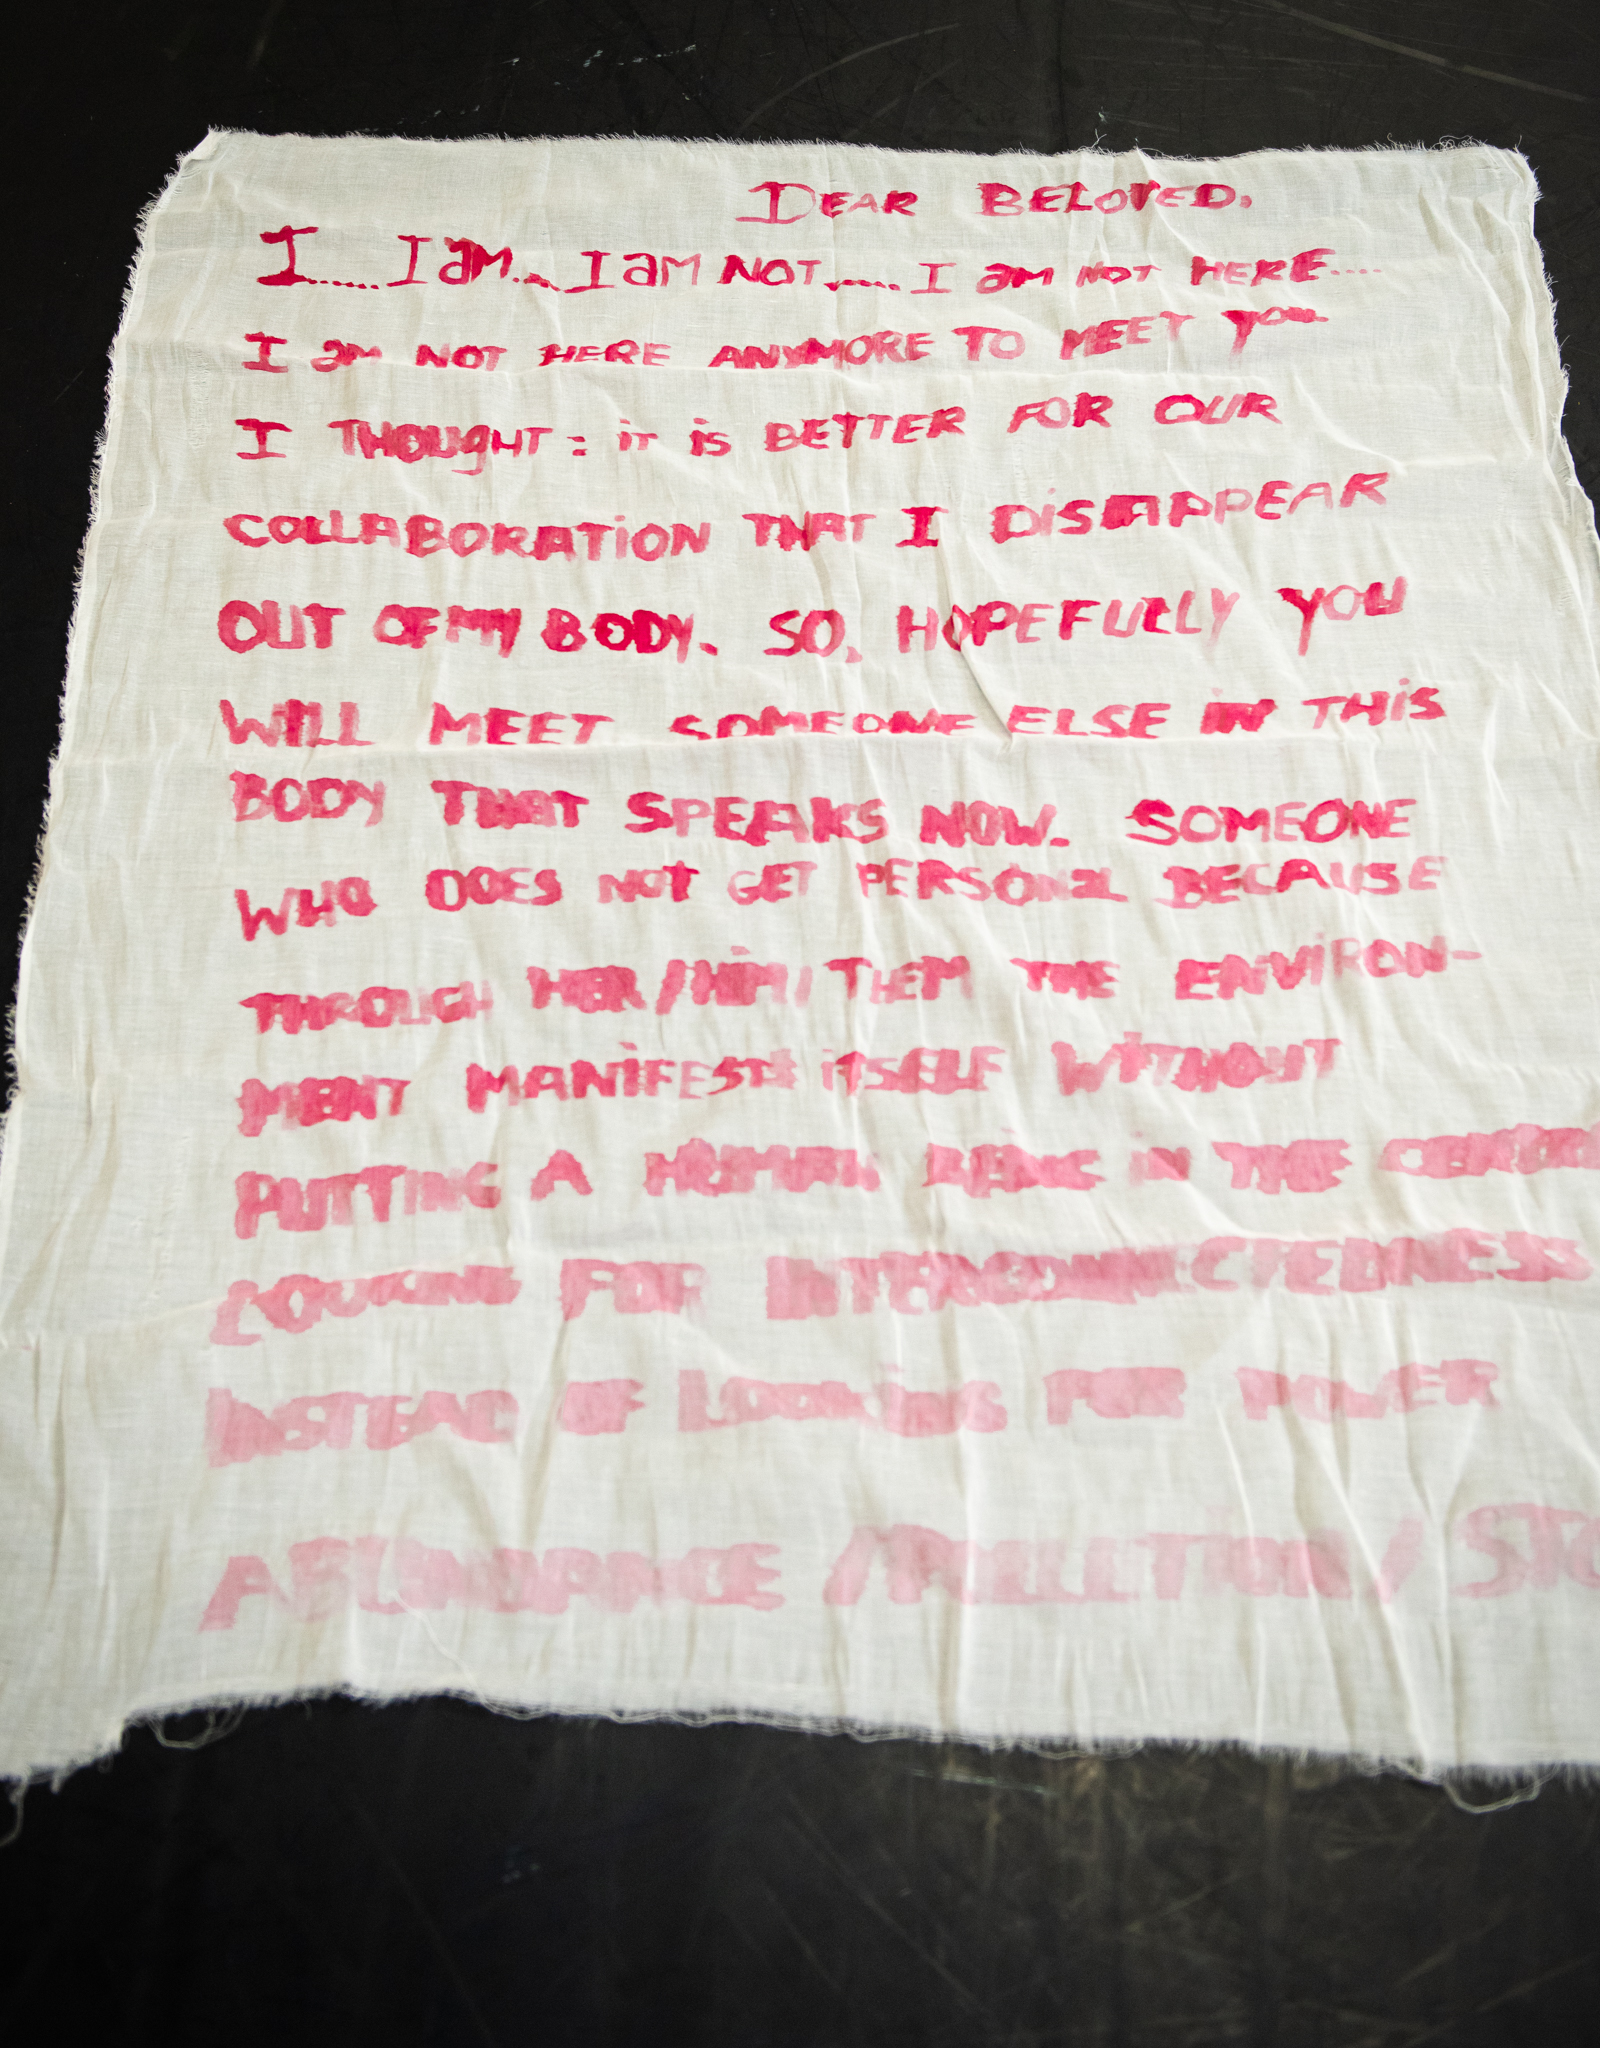 DEAR BELOVED,
I..... I am... I am NOT..... I am NOT HERE....
I am NOT HERE ANYMORE TO MEET you
I THOUGHT: it is BETTER FOR OUR
COLLABORATION THAT I DISAPPEAR
OUT OF MY BODY. SO, HOPEFULLY YOU
WILL MEET SOMEONE ELSE IN THIS
BODY THAT SPEAKS NOW. SOMEONE
WHO DOES NOT GET PERSONAL BECAUSE
THROUGH HER/HIM/THEM THE ENVIRON-
MENT MANIFESTS ITSELF WITHOUT
PUTTING A HUMAN BEING IN THE
LOOKING FOR INTERCONNECTEDNESS
INSTEAD OF LOOKING FOR POWER
ABUNDANCE / POLLUTION /